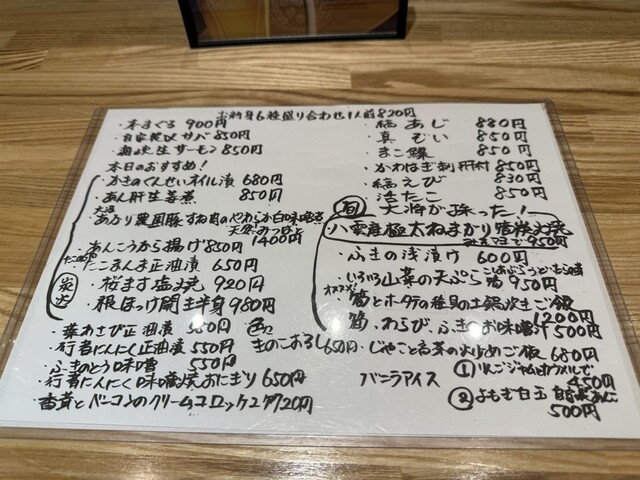 お刺身6種盛り合わせ1人前820円
・本まぐろ 900円
・自家製〆サバ 850円
・生サーモン 850円
本日のおすすめ!
・かきのくんせいオイル漬 680円
・あん肝生姜煮 850円
・あかり農園豚すね肉のやわらか白味噌煮
1400円
・あんこうから揚げ 850円
・たこまんま正油漬 650円
炭火
・桜ます塩焼 920円
・根ぼっけ開き半身 980円
・葉わさび正油漬 550円
・行者にんにく正油漬 550円
・ふきのとう味噌 550円
・行者にんにく味噌焼おにぎり 650円
・ベーコンのクリームコロッケ 2ケ720円
きのこおろし 650円
・活あじ 880円
・真ぞい 850円
・まこ鰈 850円
・かわはぎ刺 肝付 850円
・活えび 830円
・活たこ 850円
旬 大将が採った!
八雲産極太ねまがり筍炭火焼
950円
・ふきの浅漬け 600円
・いろいろ山菜の天ぷら 950円
オススメ! 筍とホタテの釜めし土鍋炊きご飯
1200円
筍・わらび、ふきのお味噌汁 500円
・じゃこと高菜の炒めご飯 680円
バニラアイス
①りんごジャムとカラメルで
450円
②よもぎ白玉 自家製あんこ
500円